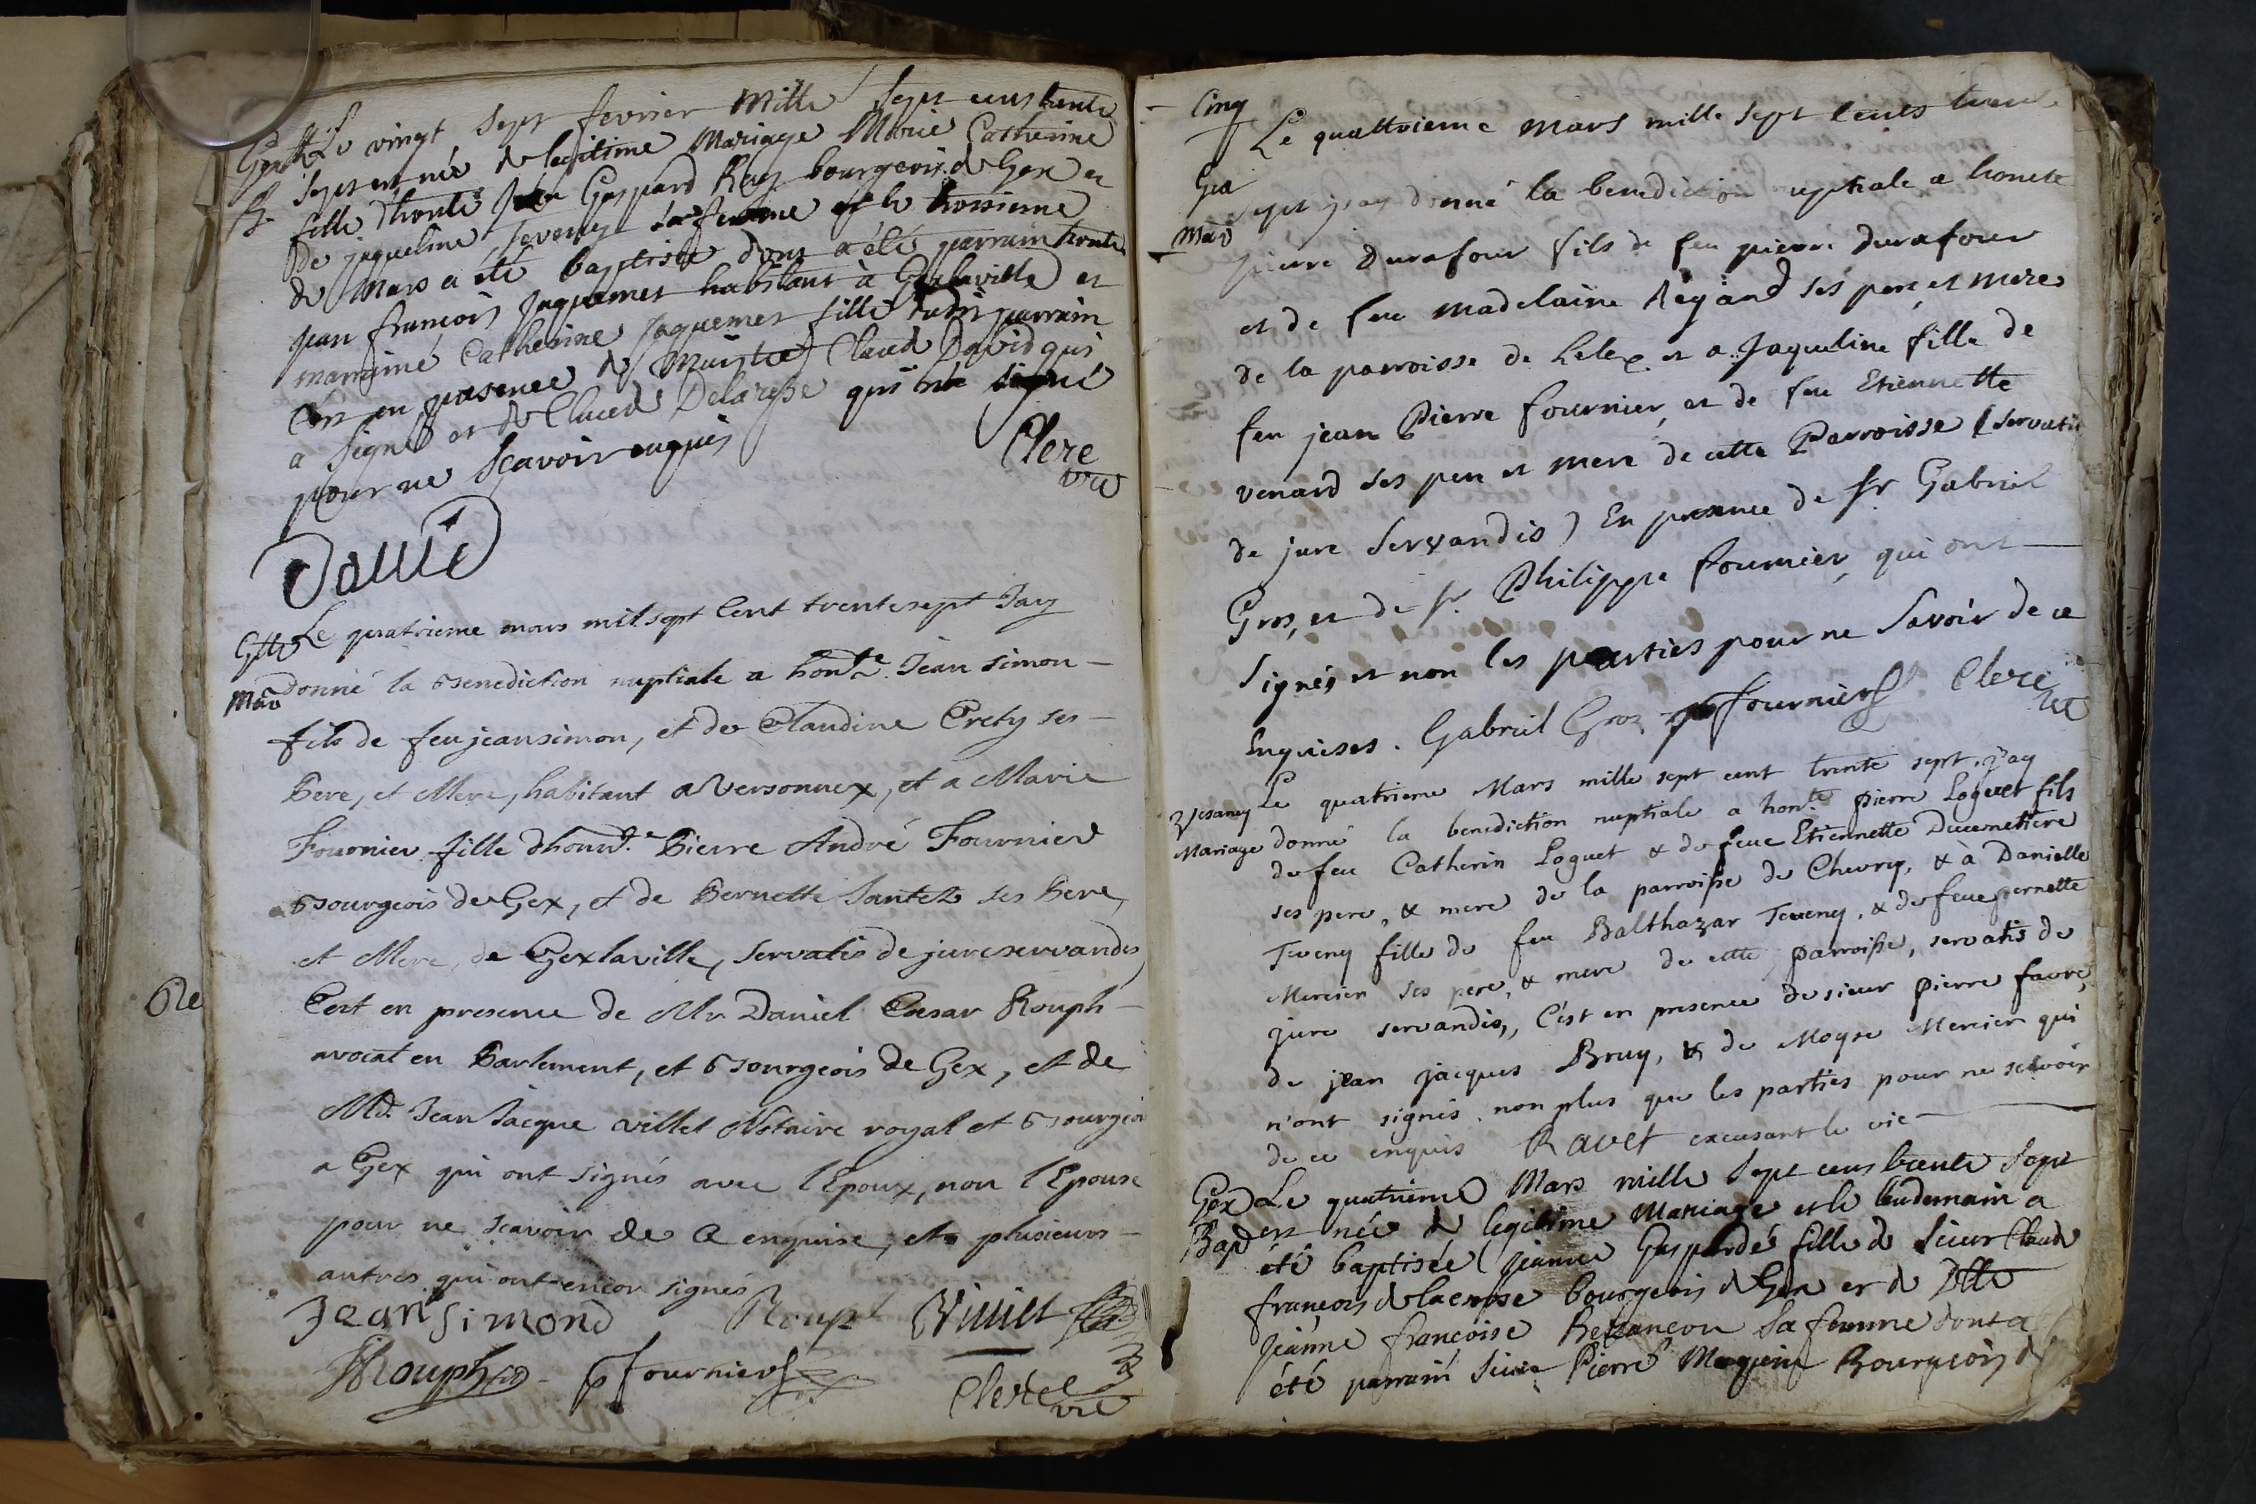 Le vingt sept fevrier mille sept cens trente
sept est née de legitime mariage Marie Catherine
fille d'honte Gaspard Ray bourgeois de Gex et
de jaqueline Teveny sa femme et le troisieme
de Mars a été baptisée dont a été parrain honte
jean françois jaquemet habitant à Gexlaville et
marraine Catherine jaquemet fille dudit parrain
C'est en presence de Claude David qui
a signé et de Claude Delacrose qui n'a signé
pour ne sçavoir enquis
Clerc
vic
David
Gex
B.
Gexlle
Mar
Le quatrieme mars mil sept Cent trente sept Jay
donné la benediction nuptiale a honte. Jean simon
fils de feu jean simon, et de Claudine Crety ses
Pere, et Mere, habitant a Versonnex, et a Marie
Fournier fille dhonte. Pierre André Fournier
bourgeois de Gex, et de Pernette ses Pere,
et Mere, de Gexlaville, servatis de jure servandis,
Cest en presence de Mr. Daniel Cesar Rouph
avocat en Parlement, et bourgeois de Gex, et de
Md. Jean Jacque Villet Notaire royal et bourgeois
a Gex qui ont signés avec l'Epoux, non l'Epouse
pour ne scavoir de ce enquise, et plusieurs
autres qui ont encor signés
Jean Simond Rouph Villiet
Rouph p fournier
Clerc
vic
Cinq
Gex
Mar
Le quattrieme mars mille sept Cents trente
sept j'ay donné la benediction nuptiale a honete
pierre Durafour fils de feu pierre Durafour
et de feu madelaine Regard ses pere et mere
de la parroisse de Lelex et a Jaqueline fille de
feu jean Pierre fournier, et de feu Etiennette
venard ses pere et mere de cette Parroisse (servatis
de jure servandis) En presence de sr. Gabriel
Gros, et de sr. Philippe fournier, qui ont
signés et non les parties pour ne savoir de ce
Enquises. Gabriel Gros p fournier Clerc
vic
Vesancy
Mariage
Le quatrieme Mars mille sept cent trente sept, j'ay
donné la benediction nuptiale a honte. pierre Loguet fils
de feu Catherin Loguet & de feue Etiennette Ducimettiere
ses pere, & mere de la parroisse de Chevry, & à Danielle
Teveny fille de feu Balthazar Teveny, & de feue pernette
Mercier ses pere, & mere de cette parroisse, servatis de
jure servandis, C'est en presence de sieur pierre favre,
de jean jacques Bruy, & de Moyse Mercier qui
n'ont signés non plus que les parties pour ne scavoir
de ce enquis Ravet excusant le vic
Gex
Bap
Le quatrieme Mars mille sept cens trente sept
est née de legitime Mariage et le lendemain a
été baptisée jeanne Gasparde fille de sieur Claude
françois delacrose bourgeois de Gex et de Dlle
jeanne françoise Bezançon sa femme dont a
été parrain sieur Pierre Bourgeois de